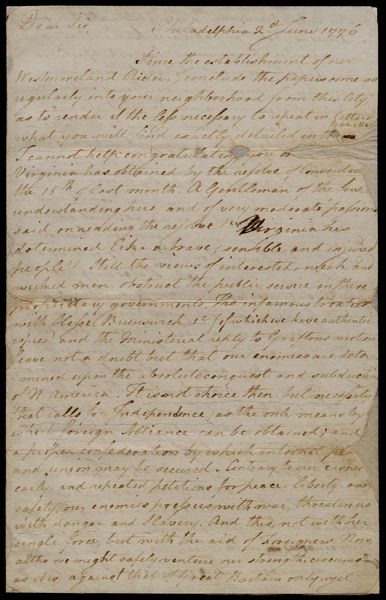 Dear Sir, Philadelphia 2d June 1776
Since the establishment of our
Westmoreland Rider, I conclude the papers come so
regularly into your neighborhood from this City
as to render it the less necessary to repeat in Letters
what you will find exactly detailed in
I cannot help congratulating you on
Virginia has obtained by the resolve of Convention
the 15th of last month. A Gentleman of the first
understanding here, and of very moderate passions
said on reading the resolve "Virginia has
determined like a brave, sensible and injured
people". Still the views of interested, weak and
wicked men, obstruct the public service in these
proprietary governments. The infamous treaties
with Hesse, Brunswick, &c. (of which we have authentic
copies) and the Ministerial reply to Graftons motion
leave not a doubt but that our enemies are deter-
mined upon the absolute conquest and subduction
of N. America. It is not choice then but necessity
that calls for Independence, as the only means by
which foreign Alliance can be obtained; and
a proper confederation by which internal
and union may be secured. Contrary to our
early, and repeated petitions for peace, liberty, and
safety, our enemies press us with war, threaten us
with danger and Slavery. And this, not with her
single force, but with the aid of Foreigners. Now,
altho we might safely venture our strength, circumstanced
as it is, against that of Great Britain only, yet